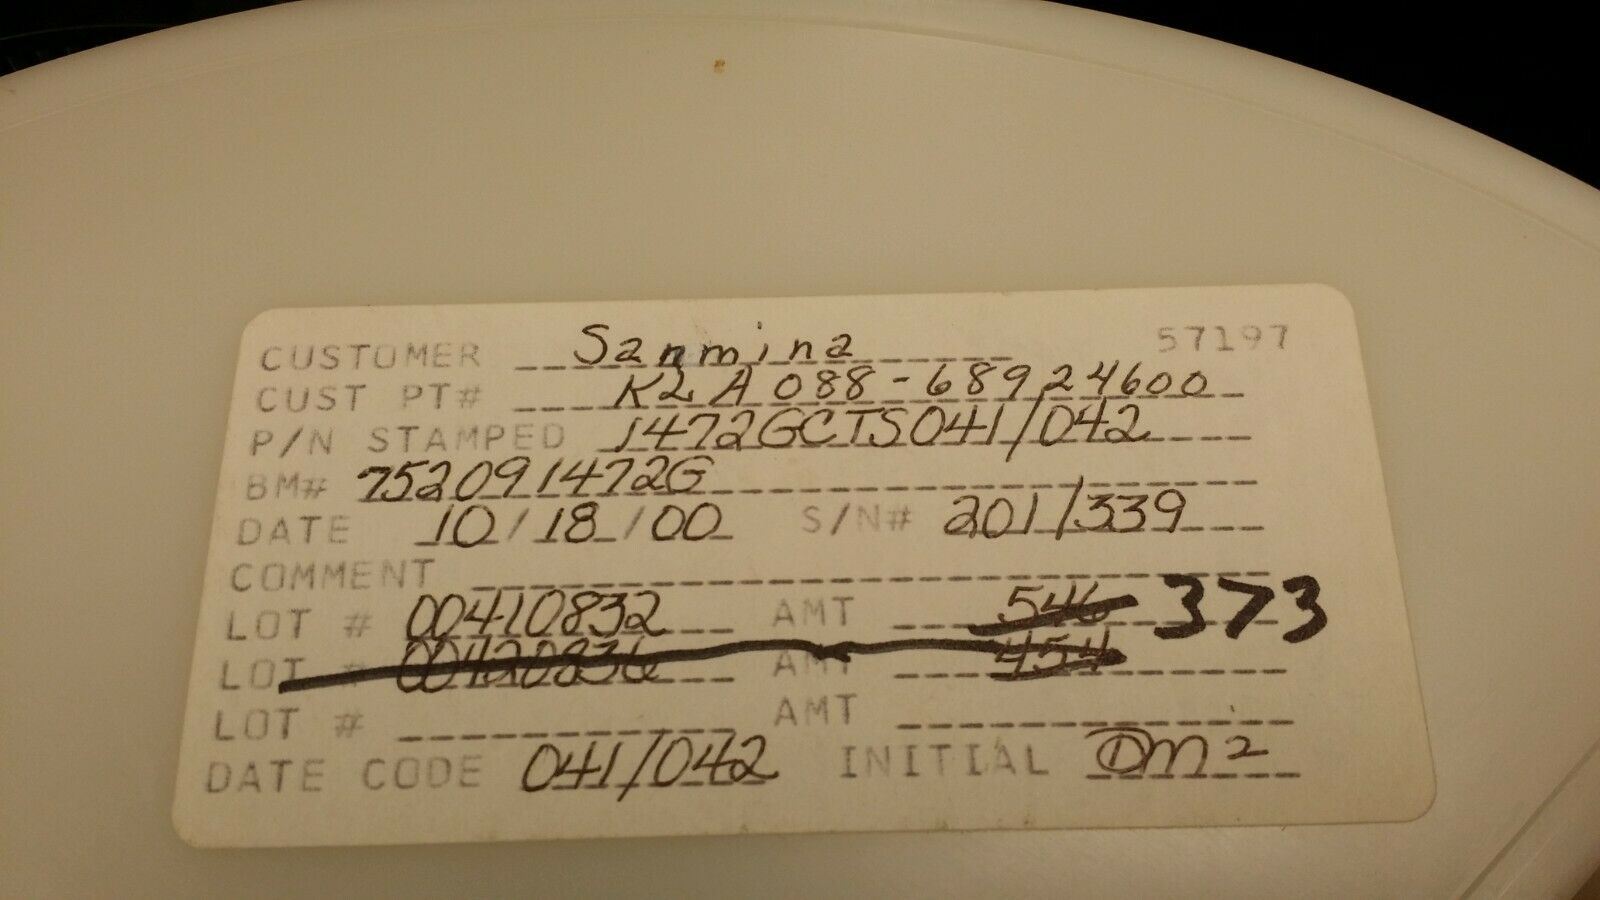 CUSTOMER Sanmina 57197
CUST PT# KLA 088-68924600
P/N STAMPED 1472GCTS041/042
BM# 752091472G
DATE 10/18/00 S/N# 201/339
COMMENT
LOT # 00410832 AMT 546 373
LOT # 00420836 AMT 454
LOT # AMT
DATE CODE 041/042 INITIAL DM2